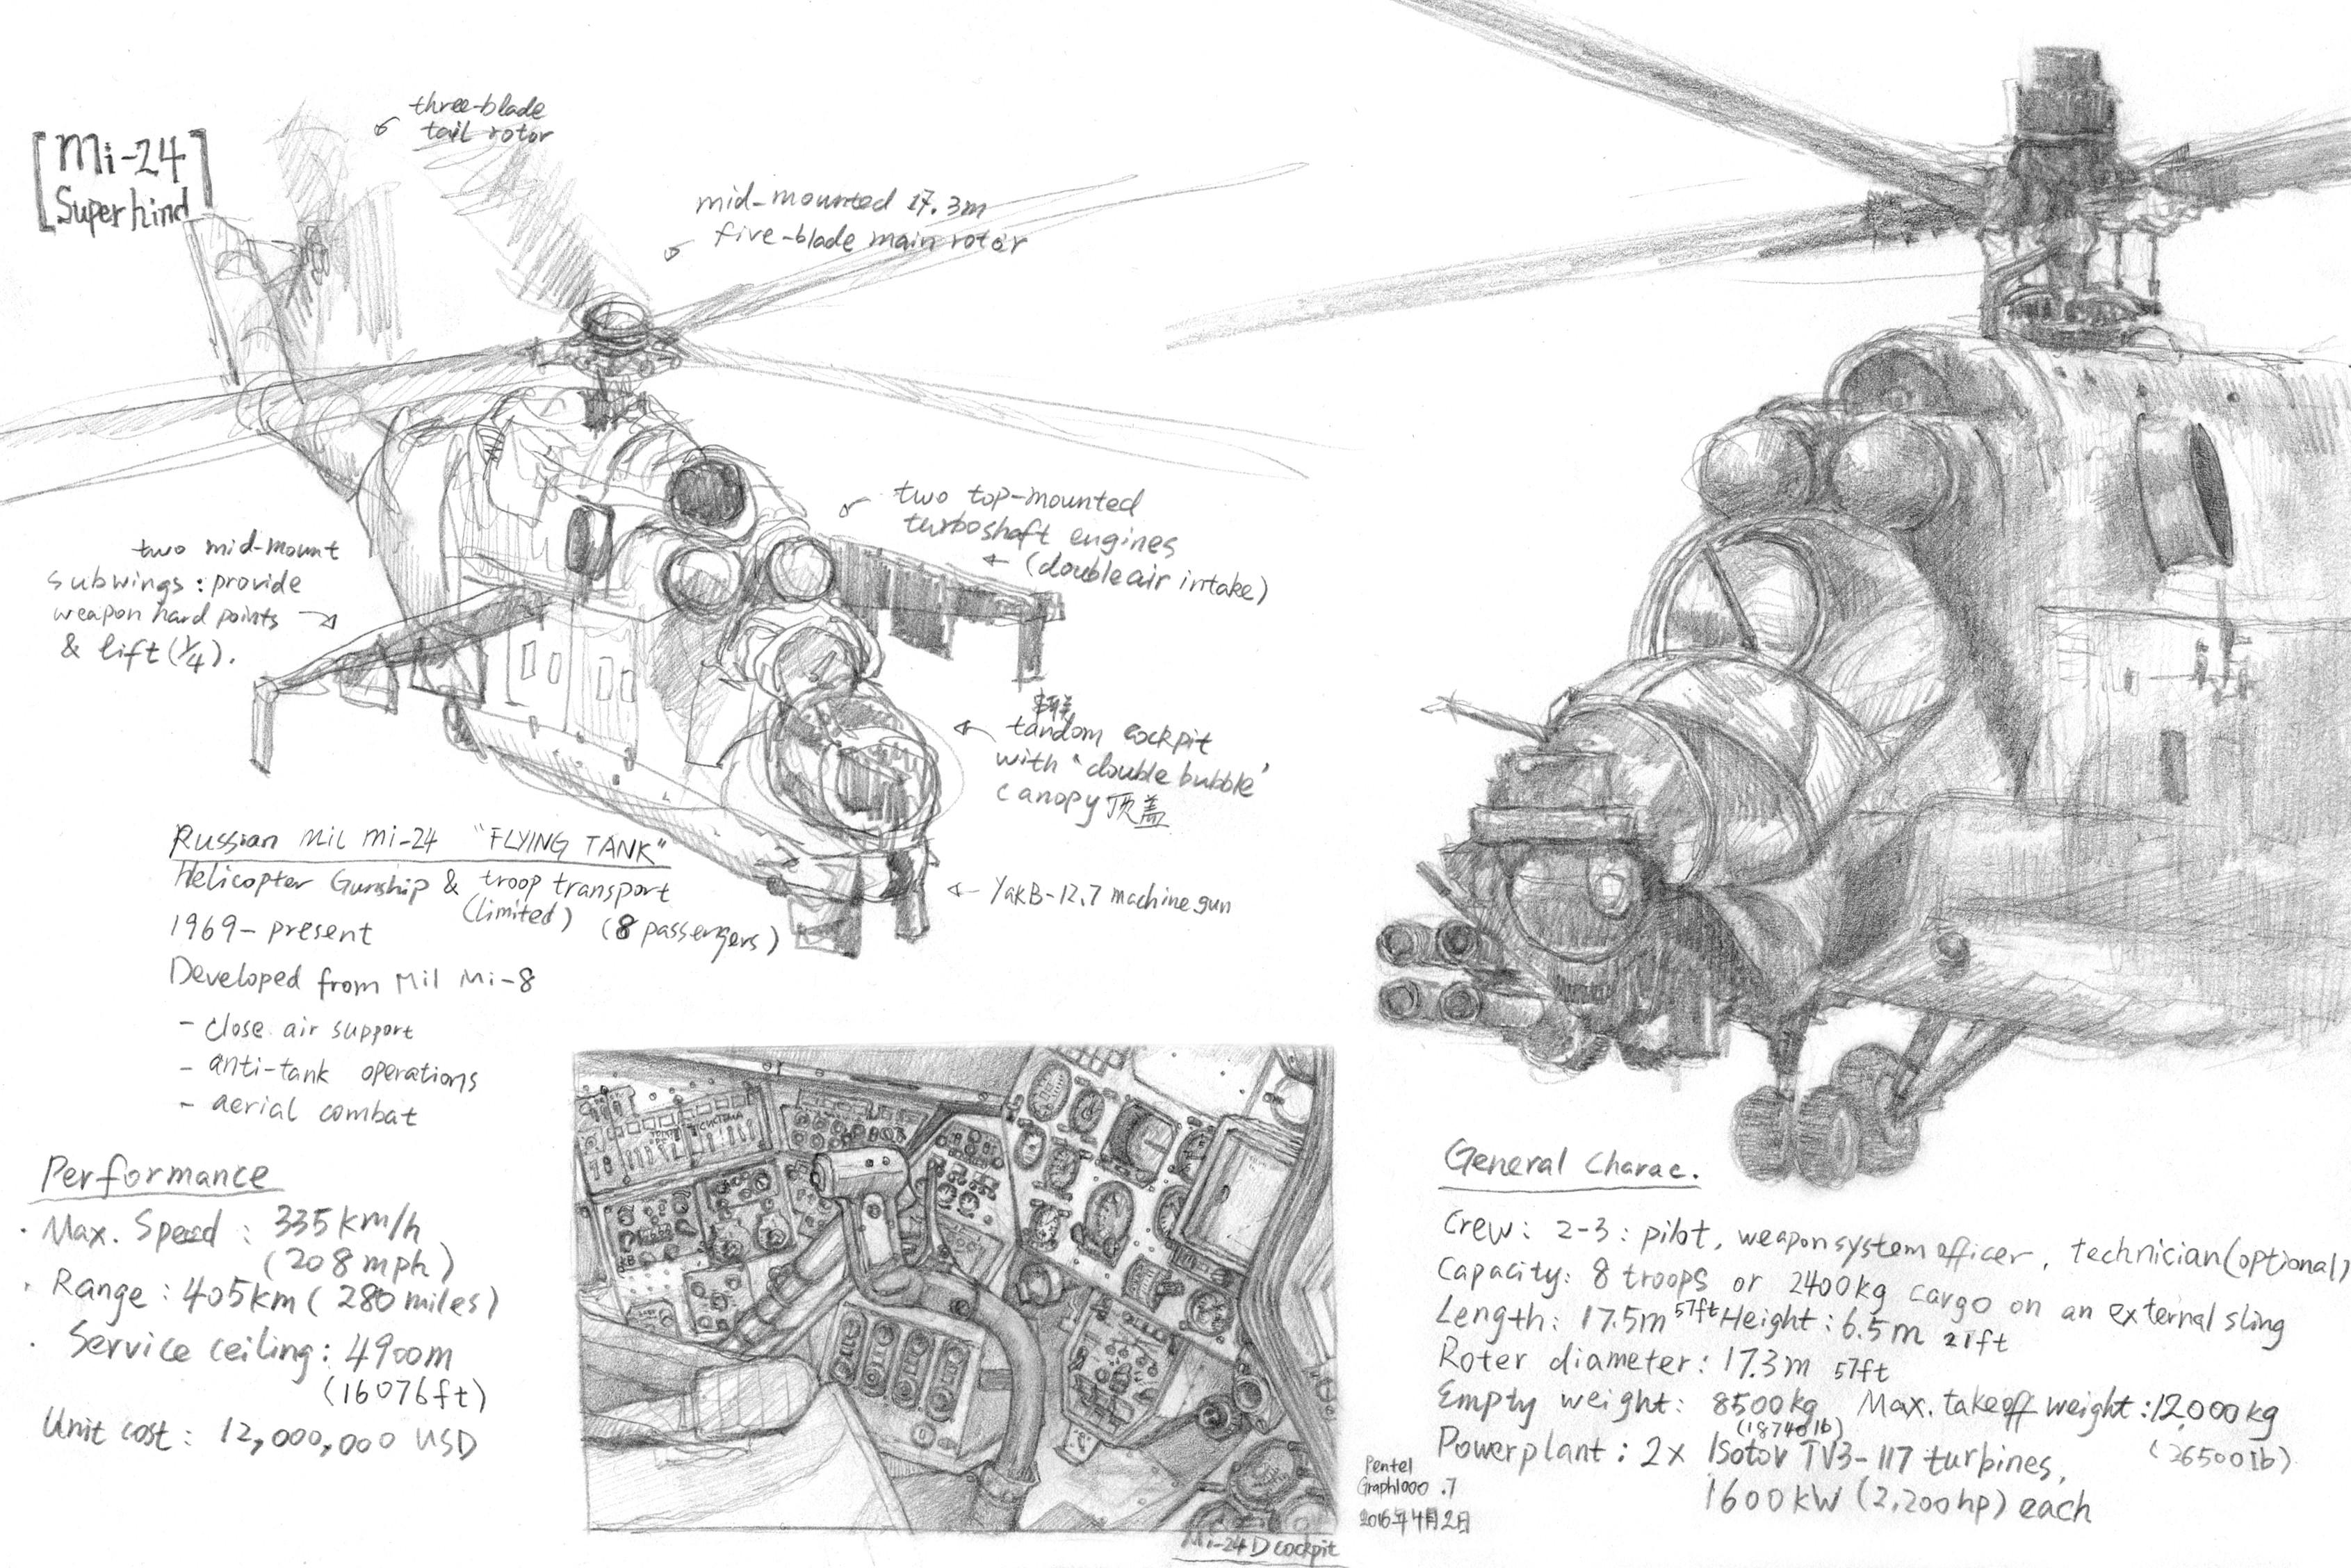 [Mi-24
Superhind]
three-blade
tail rotor
mid-mounted 17.3m
five-blade main rotor
two top-mounted
turboshaft engines
(double air intake)
two mid-mount
subwings : provide
weapon hard points
& lift (1/4).
串联
tandom cockpit
with "double bubble"
canopy 顶盖
YakB-12.7 machine gun
Russian Mil Mi-24 "FLYING TANK"
Helicopter Gunship & troop transport
(limited) (8 passengers)
1969-present
Developed from Mil Mi-8
- close air support
- anti-tank operations
- aerial combat
Performance
· Max. Speed : 335km/h
(208mph)
· Range : 405km (280 miles)
· Service ceiling : 4900m
(16076ft)
Unit cost : 12,000,000 USD
Mi-24 D cockpit
Pentel
Graph1000 .7
2016年4月2日
General Charac.
Crew : 2-3 : pilot, weapon system officer, technician (optional)
Capacity : 8 troops or 2400kg cargo on an external sling
Length : 17.5m 57ft Height : 6.5m 21ft
Roter diameter : 17.3m 57ft
Empty weight : 8500kg Max. takeoff weight : 12000kg
(18740lb) (26500lb)
Powerplant : 2x Isotov TV3-117 turbines,
1600kW (2,200hp) each